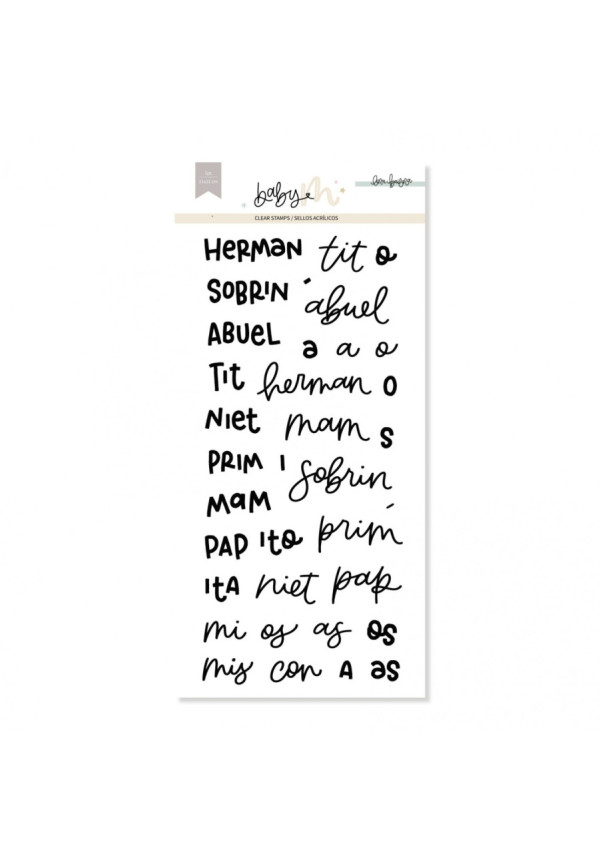 baby m
CLEAR STAMPS / SELLOS ACRÍLICOS
HERMAN tit o
SOBRIN ´ abuel
ABUEL a a o
Tit herman o
Niet mam s
PRIM I sobrin
MAM ´
PAP ito prim
itA niet pap
mi os as os
mis con A as